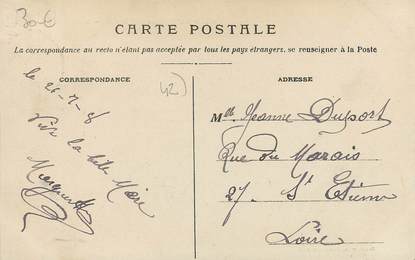 30 €
CARTE POSTALE
La correspondance au recto n'étant pas acceptée par tous les pays étrangers, se renseigner à la Poste
CORRESPONDANCE
42
le
Vive la
Marguerite
ADRESSE
Mlle Jeanne Duport
Rue du Marais
27. St Etienne
Loire